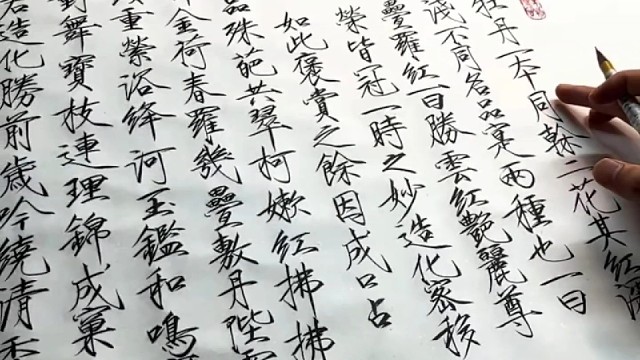 牡丹一本同幹二花其紅深
淺不同名品寔兩種也一曰
疊羅紅一曰勝雲紅艷麗尊
榮皆冠一時之妙造化密移
如此褒賞之餘因成口占
品殊葩共翠柯嫩紅拂拂
金荷春羅幾疊敷丹陛雲
重縈浴絳河玉鑑和鳴
對舞寶枝連理錦成窠
造化勝前歲吟繞清香